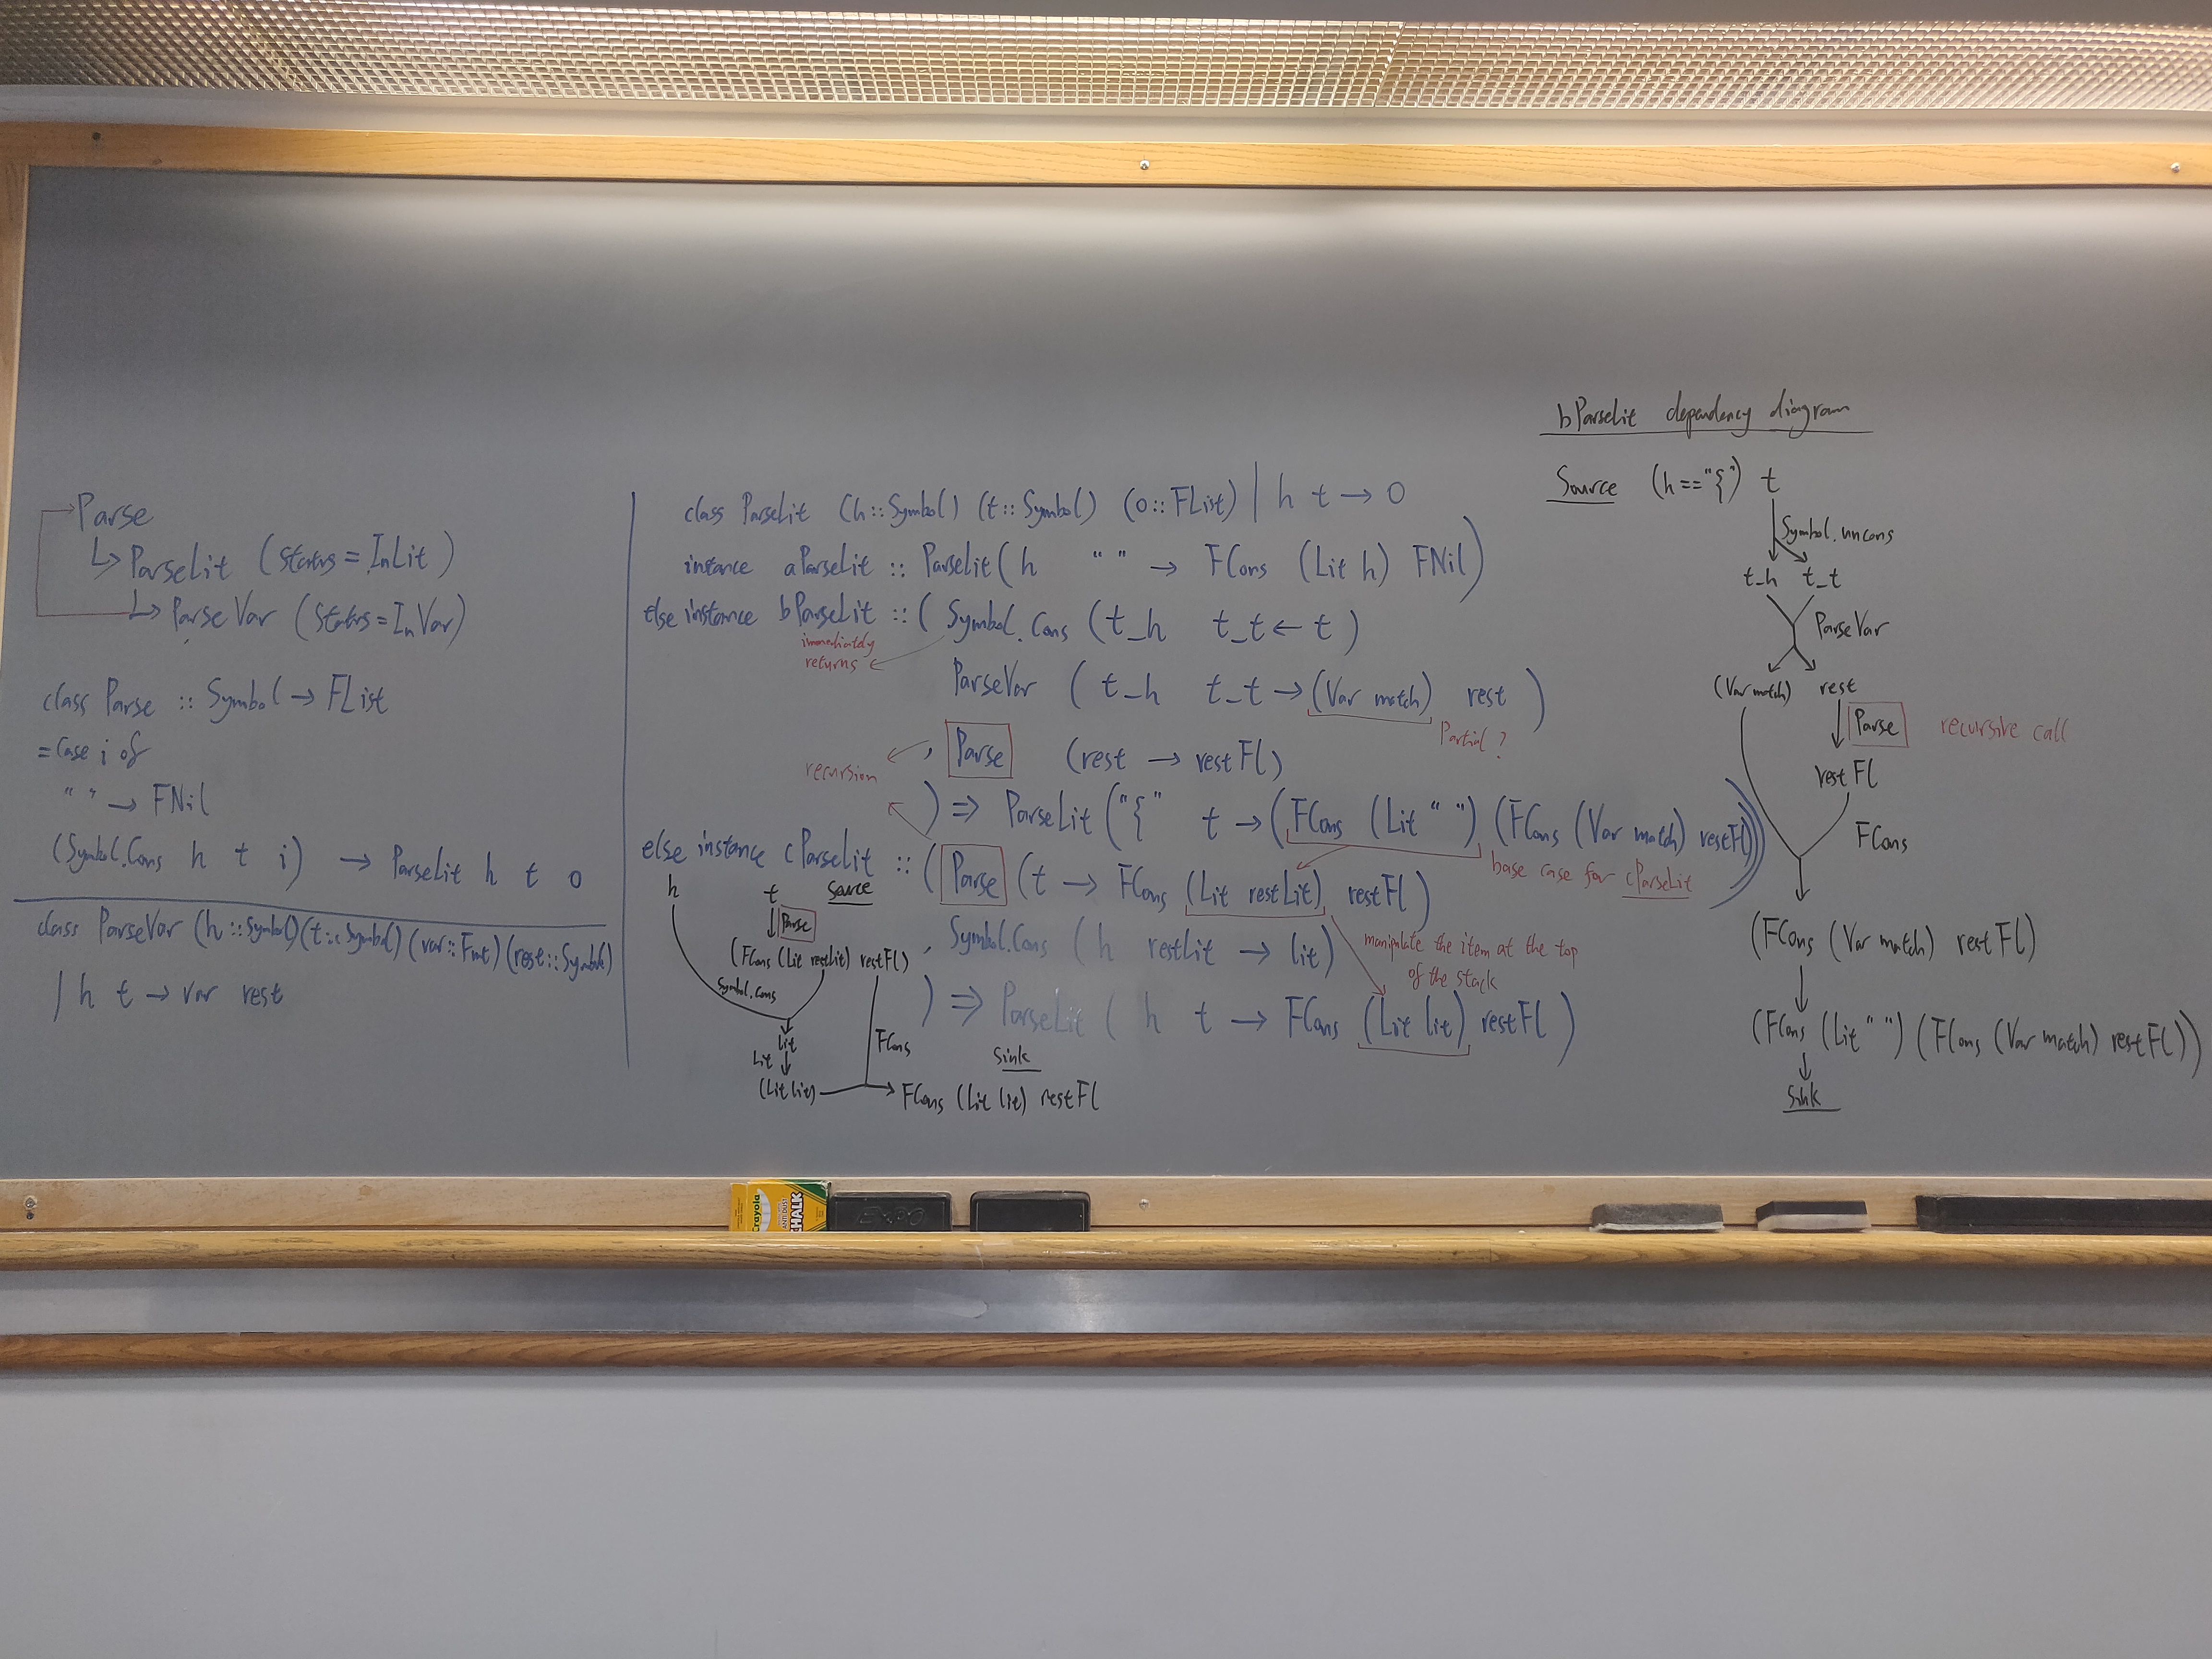 Parse
↳ ParseLit (Status = InLit)
↳ ParseVar (Status = InVar)
class Parse :: Symbol → FList
= case i of
" " → FNil
(Symbol.Cons h t i) → ParseLit h t o
class ParseVar (h :: Symbol) (t :: Symbol) (var :: Fmt) (rest :: Symbol)
| h t → var rest
class ParseLit (h :: Symbol) (t :: Symbol) (o :: FList) | h t → o
instance aParseLit :: ParseLit (h " " → FCons (Lit h) FNil)
else instance bParseLit :: ( Symbol.Cons (t_h t_t ← t)
immediately
returns
ParseVar ( t_h t_t → (Var match) rest )
Partial ?
, Parse (rest → restFl)
recursion
) => ParseLit ("{" t → (FCons (Lit " ") (FCons (Var match) restFl)))
base case for cParseLit
else instance cParseLit :: ( Parse (t → FCons (Lit restLit) restFl)
, Symbol.Cons (h restLit → lit)
manipulate the item at the top
of the stack
) => ParseLit ( h t → FCons (Lit lit) restFl )
h t Source
Parse
(FCons (Lit restLit) restFl)
Symbol.Cons
lit
Lit
FCons
Sink
(Lit lit) → FCons (Lit lit) restFl
bParseLit dependency diagram
Source (h == "{") t
Symbol.uncons
t_h t_t
ParseVar
(Var match) rest
Parse recursive call
restFl
FCons
(FCons (Var match) restFl)
(FCons (Lit " ") (FCons (Var match) restFl))
Sink
Crayola
ANTI-DUST
CHALK
EXPO